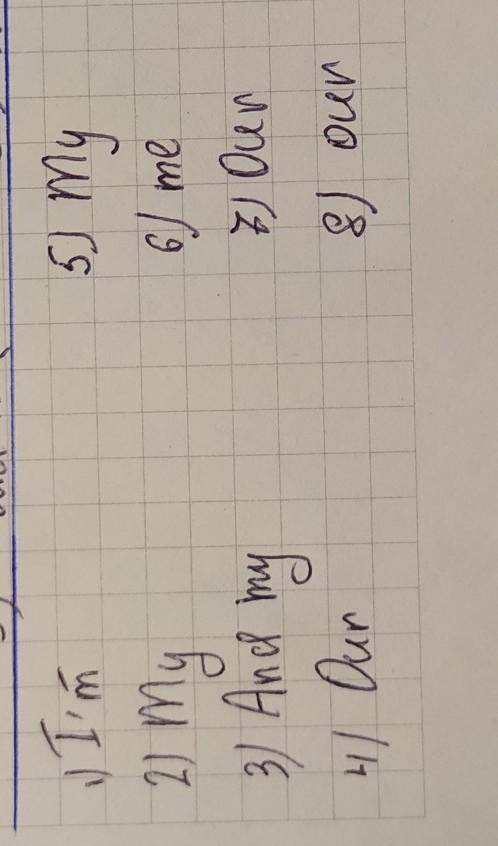 1) I'm
2) My
3) And my
4) Our
5) My
6) me
7) Our
8) our